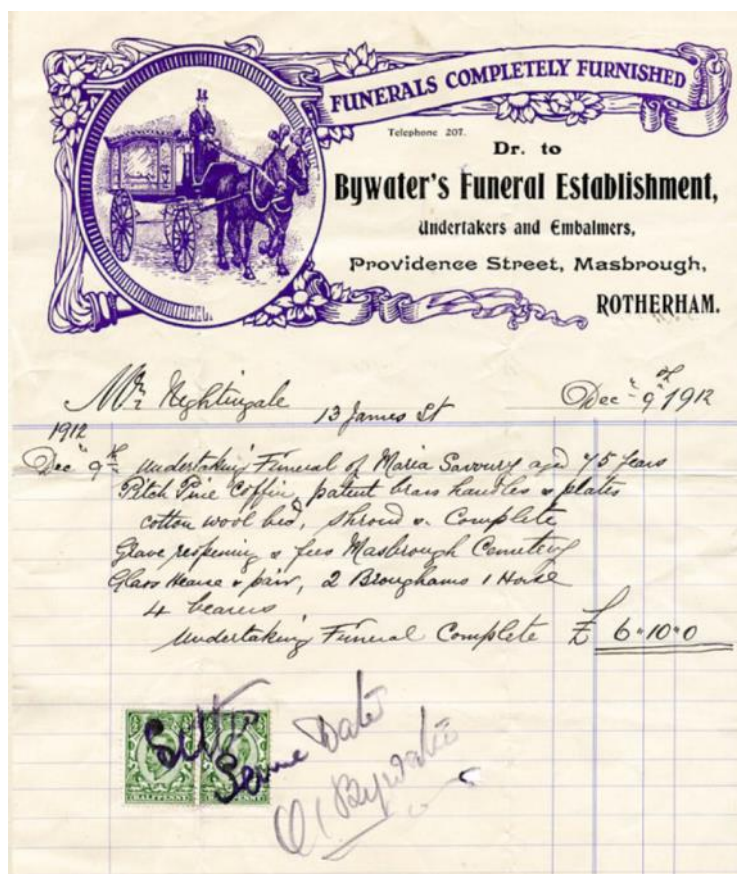 FUNERALS COMPLETELY FURNISHED
Telephone 207.
Dr. to
Bywater's Funeral Establishment,
Undertakers and Embalmers,
Providence Street, Masbrough,
ROTHERHAM.
Mr Nightingale 13 James St Dec 9th 1912
1912
Dec 9th Undertaking Funeral of Maria Savoury aged 75 years
Pitch Pine Coffin, patent brass handles & plates
cotton wool bed, shroud & Complete
Grave reopening & fees Masbrough Cemetery
Glass Hearse & pair, 2 Broughams 1 Horse
4 bearers
Undertaking Funeral Complete £ 6-10-0
HALFPENNY
Same Date
Bywater